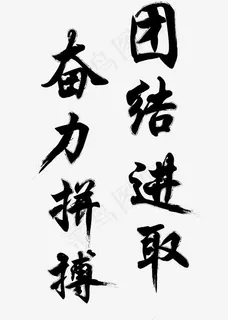 团结进取
奋力拼搏